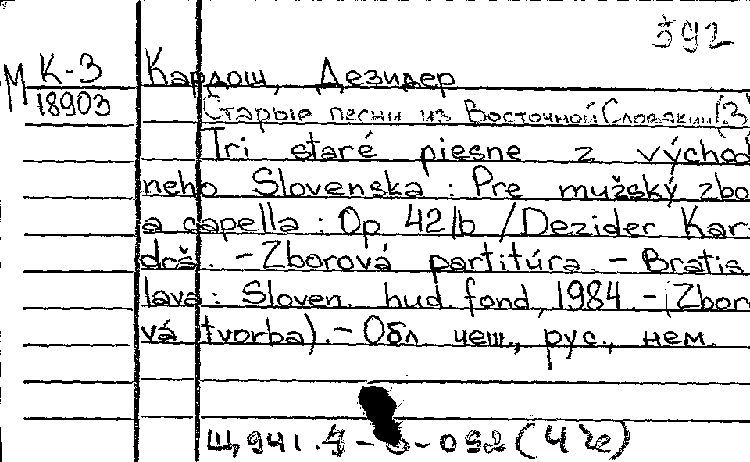 592
М К-3 Кардош, Дезидер
18903 Старые песни из Восточной Словакии (3)
Tri staré piesne z východ
neho Slovenska : Pre mužský zbo
a capella : Op 42/b / Dezider Kar-
doš. - Zborová partitúra. - Bratis
lava : Sloven. hud. fond, 1984. - (Zbor
vá tvorba). - Обл. чеш., рус., нем.
Щ,941.